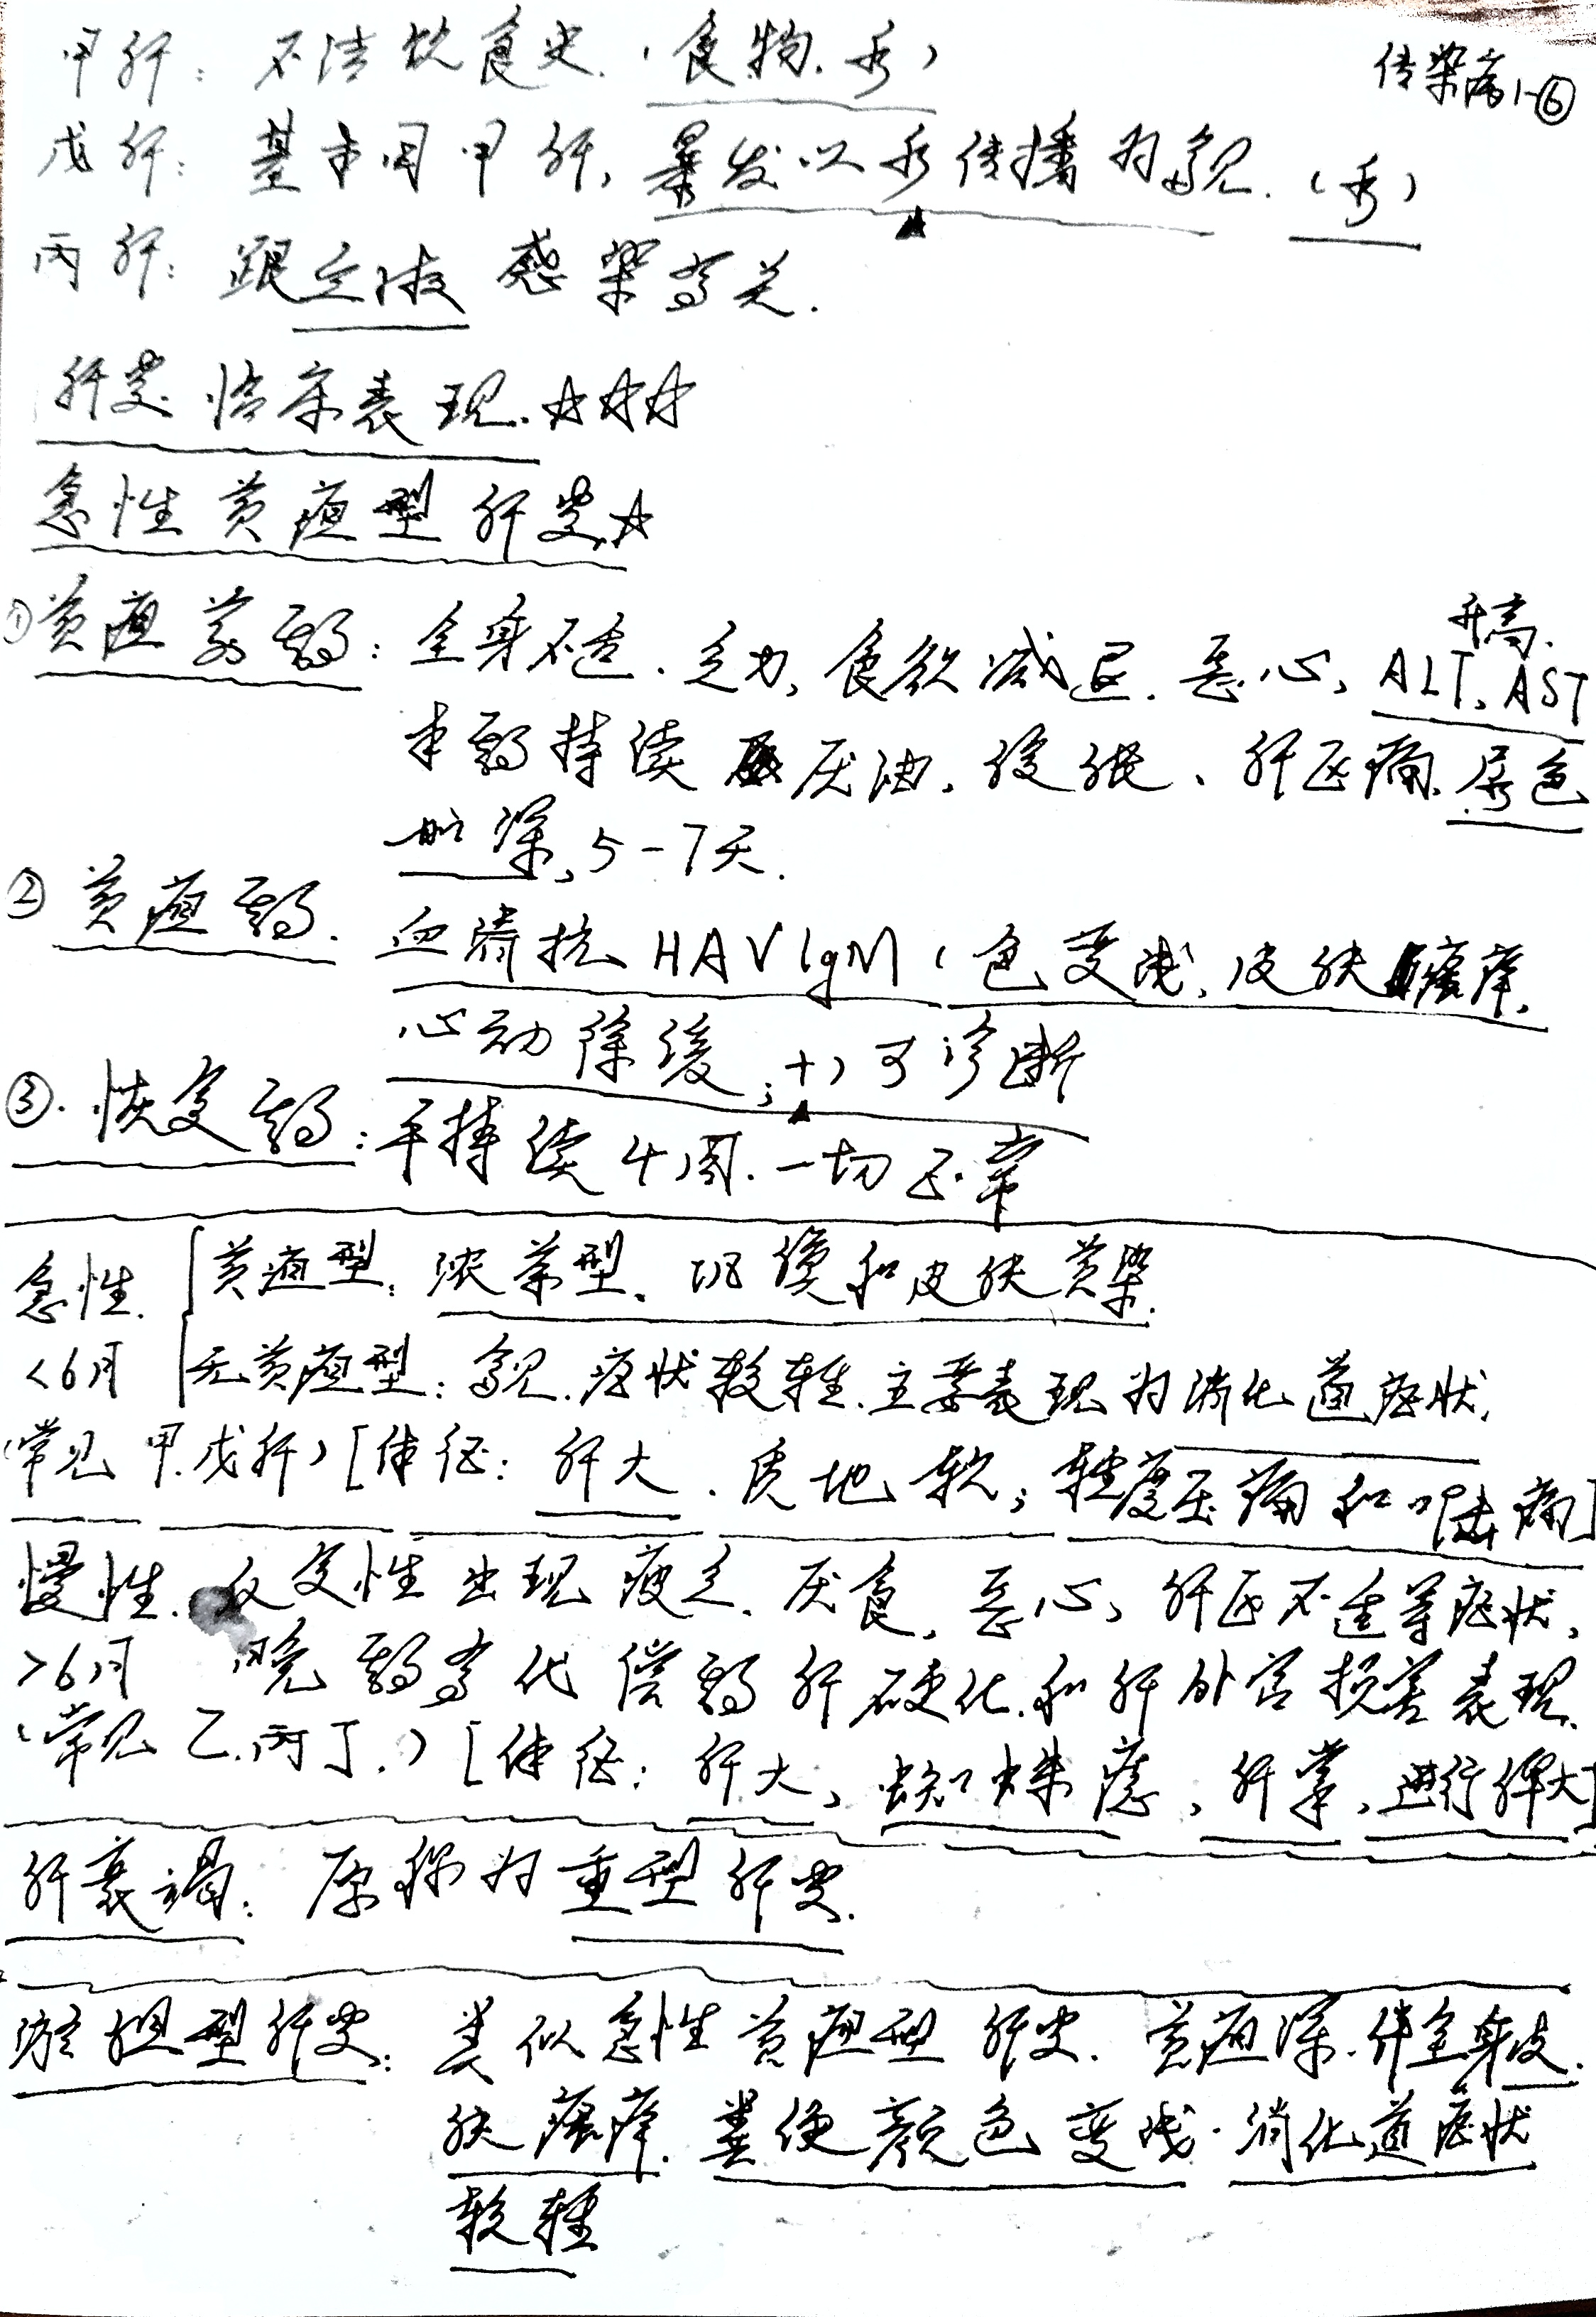 传染病1-⑥
甲肝：不洁饮食史.（食物.水）
戊肝：基本同甲肝，暴发以水传播为常见.（水）
丙肝：跟血液感染有关.
肝炎临床表现.☆☆☆
急性黄疸型肝炎☆
①黄疸前期：全身不适.乏力,食欲减退.恶心,ALT,AST升高.
本期持续 厌油,腹胀、肝区痛.尿色
加深,5-7天.
②黄疸期.血清抗HAVIgM（色变浅,皮肤瘙痒,
心动徐缓;+）可诊断
③.恢复期:平持续4周.一切正常
急性.黄疸型:浓茶型.巩膜和皮肤黄染.
<6月 无黄疸型:常见.症状较轻.主要表现为消化道症状,
(常见甲.戊肝)[体征:肝大.质地软;轻度压痛和叩痛]
慢性.反复性出现疲乏.厌食,恶心,肝区不适等症状,
>6月 晚期有代偿期肝硬化.和肝外害损害表现.
(常见乙.丙丁.)[体征:肝大,蜘蛛痣,肝掌,进行脾大]
肝衰竭:原称为重型肝炎.
瘀胆型肝炎:类似急性黄疸型肝炎.黄疸深.伴全身皮.
肤瘙痒.粪便颜色变浅.消化道症状
较轻